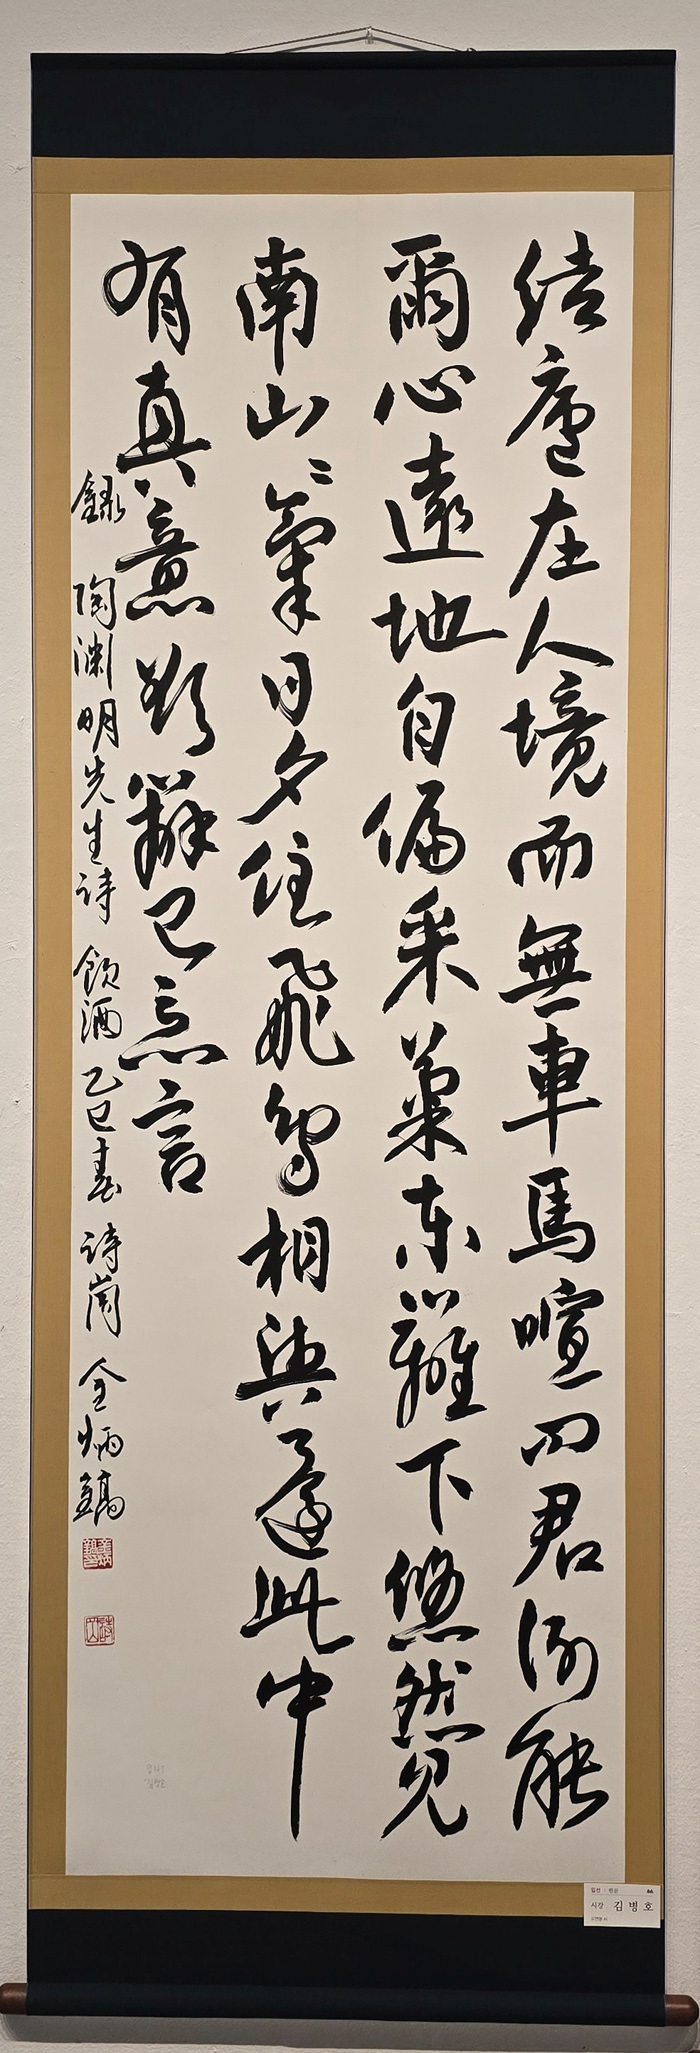 結廬在人境而無車馬喧問君何能
爾心遠地自偏采菊東籬下悠然見
南山〻氣日夕佳飛鳥相與還此中
有真意欲辯已忘言
錄 陶渊明先生詩 飮酒 乙巳春 詩崗 金炳鎬
입선 : 한문
시강 김병호
도연명 시